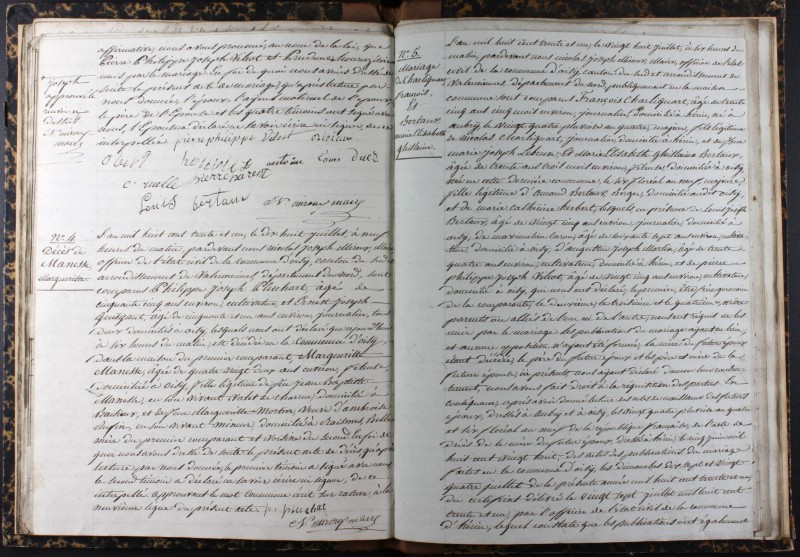 affirmative, nous avons prononcé, au nom de la loi, que
Pierre Philippe Joseph Velvot et
unis par le mariage. En foi de quoi nous avons dressé de
suite le présent acte de mariage, qu'après lecture par
nous donnée, l'époux, l'ayeul maternel de l'époux,
le père de l'épouse et les quatre témoins ont signé avec
nous, l'épouse a déclaré ne savoir écire ni signer, de ce
interpellée pierre philippe Velvot
Louis Duez
c. ruelle pierre
Louis bertaux
N.J. miroux mary
Joseph
approuvé le
mot
N. miroux
mary
N° 4.
Décès de
Manesse
Marguerite
L'an mil huit cent trente et un, le dix huit juillet, à neuf
heures du matin, pardevant nous Nicolas Joseph Miroux, Maire
officier de l'état civil de la commune d'oisy, canton du Sud et
arrondissement de Valenciennes, département du Nord, sont
comparus Philippe Joseph, âgé de
cinquante cinq ans environ, cultivateur, et Ernest Joseph
Quissart, âgé de cinquante et un ans environ, journalier, tous
deux domiciliés à oisy, lesquels nous ont déclaré que
à six heures du matin, est décédée en la Commune d'oisy
dans la maison du premier comparant, Marguerite
Manesse, âgée de quatre vingt deux ans environ, fileuse
domiciliée à oisy, fille légitime de feu Jean Baptiste
Manesse, en son vivant Valet de charrue, domicilié à
et de feue Marguerite, Veuve d'ambroise
en son vivant mineur domicilié à Raismes, Belle
mère du premier comparant et voisine du second. En foi de
quoi nous avons dressé de suite le présent acte de décès qu'après
lecture par nous donnée, le premier témoin a signé avec nous,
le second témoin a déclaré ne savoir écrire ni signer, de ce
interpellé approuvant le mot Commune
neuvième ligne du présent acte
N.J. miroux mary
N° 5.
Mariage
de Charliquart
François,
Et
Bertaux,
Marie Elisabeth
Ghislaine.
L'an mil huit cent trente et un, le vingt huit juillet, à dix heures du
matin, pardevant nous Nicolas Joseph Miroux, Maire, officier de l'état
civil de la commune d'oisy, canton du Sud et arrondissement de
Valenciennes département du Nord, publiquement en la maison
commune sont comparus François Charliquart, âgé de trente
cinq ans cinq mois environ, journalier, domicilié à hérin, né à
aubry, le vingt quatre pluviose an quatre, majeur, fils légitime
de Nicolas Charliquart, journalier, domicilié à hérin, et de feue
Marie Joseph, Et Marie Elisabeth Ghislaine Bertaux,
âgée de trente ans trois mois environ, fileuse, domiciliée à oisy
née en cette dernière commune, le dix floréal an neuf, majeure,
fille légitime d'amand Bertaux, Berger, domicilié audit oisy,
et de marie catherine herbert, lesquels, en présence de Louis Joseph
Bertaux, âgé de vingt cinq ans environ, journalier, domicilié à
oisy, de maximilien caron, âgé de soixante sept ans environ, cultiva-
teur, domicilié à oisy, d'augustin Joseph Morten, âgé de trente
quatre ans environ, cultivateur, domicilié à hérin, et de pierre
Philippe Joseph Velvot, âgé de vingt cinq ans environ, cultivateur,
domicilié à oisy, qui nous ont déclaré, le premier, être frère germain
de la comparante, le deuxième, le troisième et le quatrième, n'être
parents ou alliés de l'un ni de l'autre, nous ont requis de les
unir par le mariage. Les publications de mariage ayant eu lieu,
et aucune opposition n'ayant été formée, la mère du futur époux
étant décédée, le père du futur époux et les père et mère de la
future épouse, ici présents, nous ayant déclaré donner leur consen-
tement, nous avons fait droit à la réquisition des parties. En
conséquence, après avoir donné lecture des actes de naissance des futurs
époux, dressés à aubry et à oisy, les vingt quatre pluviose an quatre
et dix floréal an neuf de la république française, de l'acte de
Décès de la mère du futur époux, dressé à hérin, le
huit cent vingt, des actes des publications de mariage
faites en la commune d'oisy, les dimanches dix sept et vingt-
quatre juillet de la présente année mil huit cent trente et un,
du certificat délivré le vingt sept juillet mil huit cent
trente et un, par l'officier de l'état civil de la commune
d'hérin, lequel constate que les publications ont également